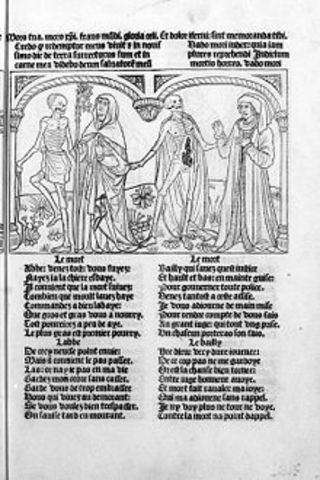 Mors tua. mors xpi. fraus mūdi. gloria celi. Et dolor iferni: sint memoranda tibi.
Credo q redemptor meus viuit z in nouis
simo die de terra surrecturus sum et in
carne mea videbo deum saluatorē meū
Vado mori iudex: quia iam
plures reprehendi Iudicium
mortis horreo. vado mori
Le mort
Abbe: venez tost: vous fuyez:
Nayez ia la chiere esbaye.
Il conuient que la mort suiuez:
Combien que moult lauez haye
Commandez a dieu labaye:
Que gros et gras vous a nourry.
Tost pourrirez a peu de aye.
Le plus gras est premier pourry.
Labbe
De cecy neusse point enuie:
Mais il conuient le pas passer.
Las: or nay ie pas en ma vie
Garde mon ordre sans casser.
Garde vous de trop embrasser
Vous qui viuez au demorant:
Se vous voulez bien trespasser.
On sauise tard en mourant.
Le mort
Bailly qui sauez quest iustice
Et hault et bas: en mainte guise:
Pour gouuerner toute police.
Venez tantost a ceste assise.
Je vous adiourne de main mise
Pour rendre compte de vous fais
Au grant iuge: qui tout vng prise.
Un chascun portera son fais.
Le bailly
Hee dieu: vecy dure iournee:
De ce cop pas ne me gardoye
Or est la chanse bien tornee:
Entre iuge honneur auoye.
Et mort fait raualer ma ioye:
Qui ma adiourne sans rappel.
Je ny voy plus ne tour ne voye.
Contre la mort na point dappel.